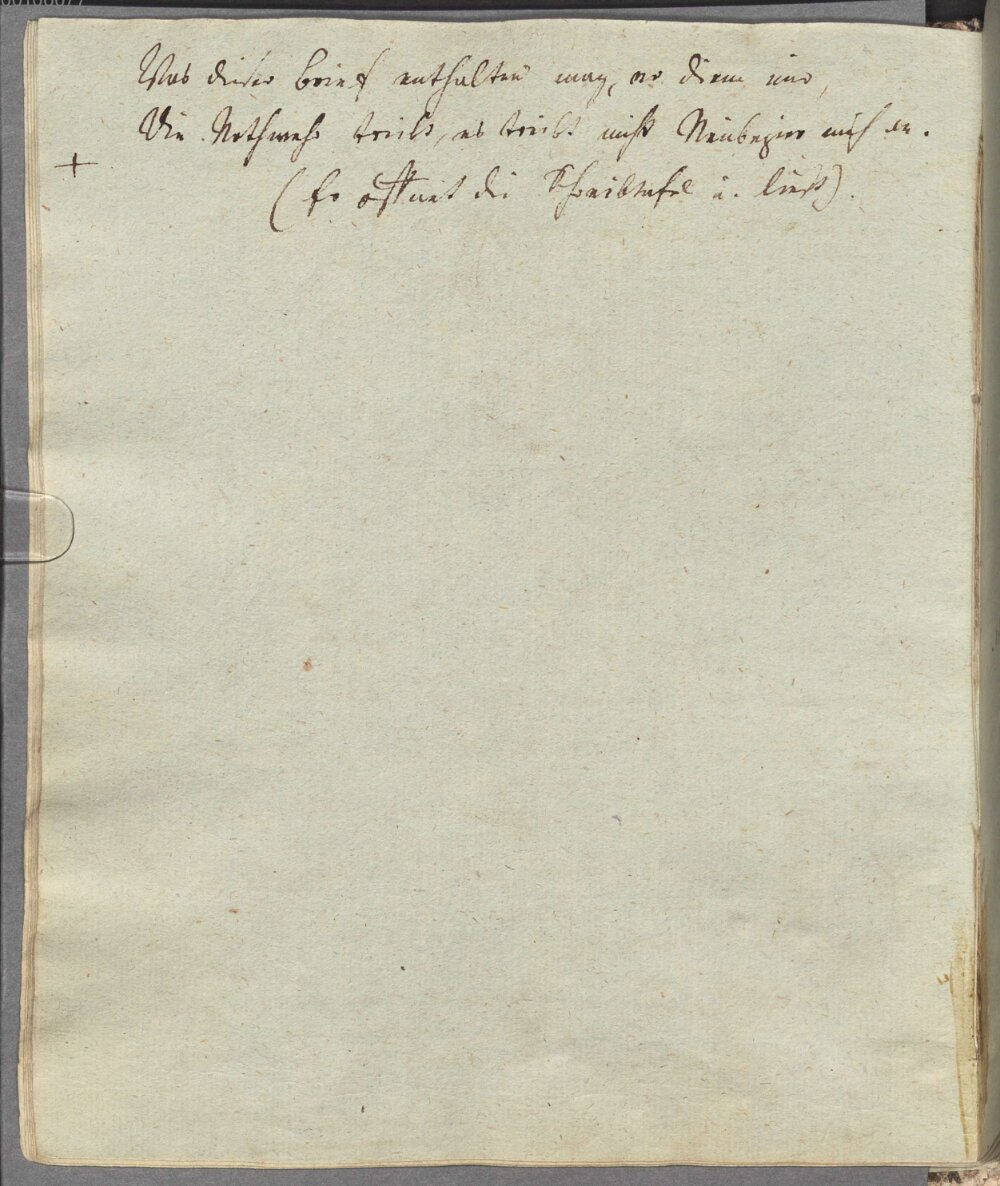 Was dieser Brief enthalten mag, er diene mir,
Die Nothwehr treibt, es treibt nicht Neubegier mich an.
+
(Er öffnet die Schreibtafel u. ließt).